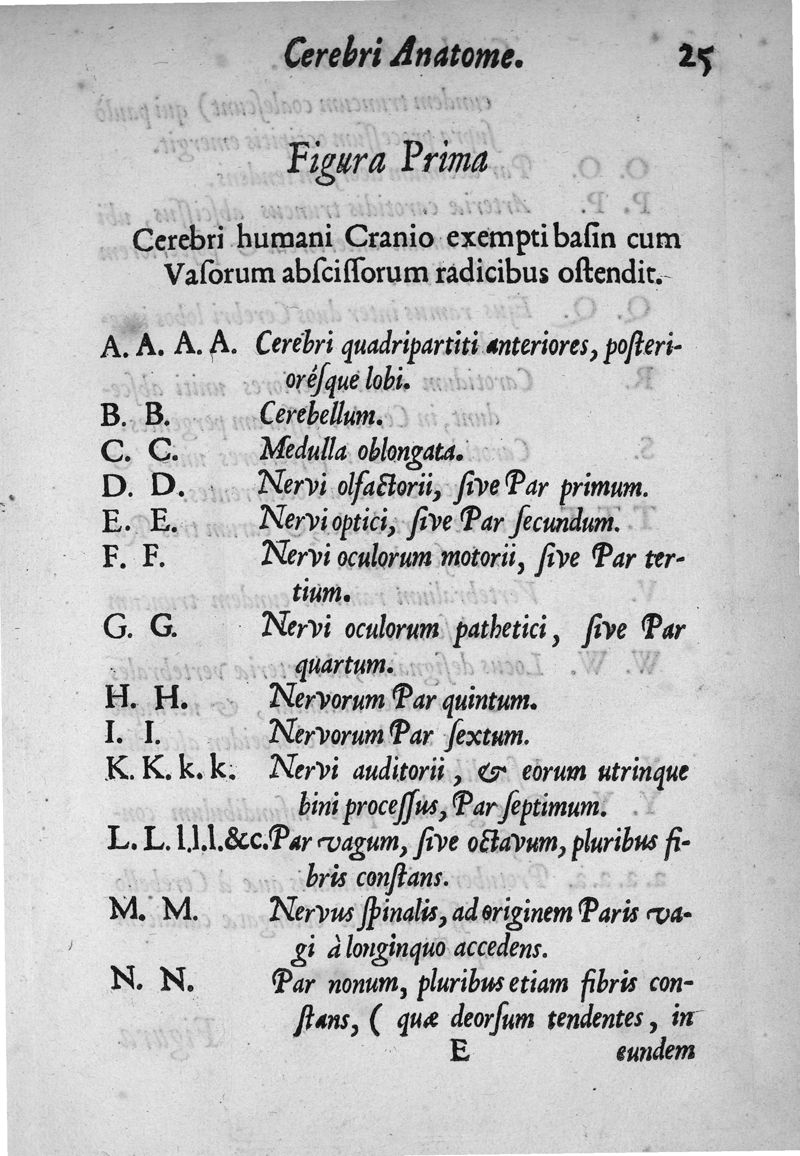 Cerebri Anatome. 25
Figura Prima
Cerebri humani Cranio exempti baſin cum
Vaſorum abſciſſorum radicibus oſtendit.
A. A. A. A. Cerebri quadripartiti anteriores, poſteri-
oréſque lobi.
B. B. Cerebellum.
C. C. Medulla oblongata.
D. D. Nervi olfactorii, ſive Par primum.
E. E. Nervi optici, ſive Par ſecundum.
F. F. Nervi oculorum motorii, ſive Par ter-
tium.
G. G. Nervi oculorum pathetici, ſive Par
quartum.
H. H. Nervorum Par quintum.
I. I. Nervorum Par ſextum.
K. K. k. k. Nervi auditorii, & eorum utrinque
bini proceſſus, Par ſeptimum.
L. L. l.l.l.&c. Par vagum, ſive octavum, pluribus fi-
bris conſtans.
M. M. Nervus ſpinalis, ad originem Paris va-
gi à longinquo accedens.
N. N. Par nonum, pluribus etiam fibris con-
ſtans, ( quæ deorſum tendentes, in
E eundem